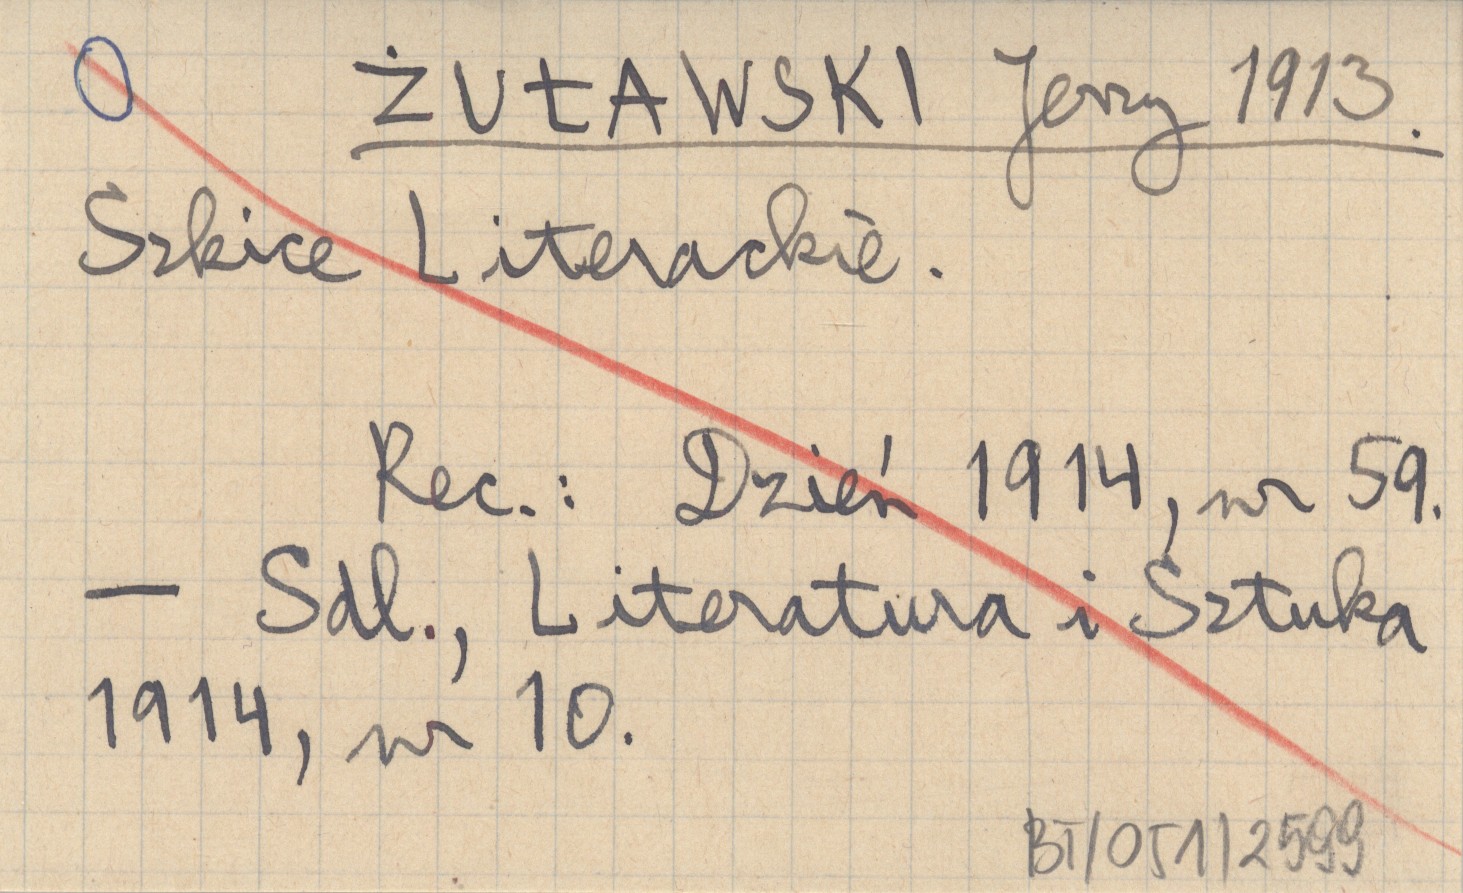 O ŻUŁAWSKI Jerzy 1913.
Szkice Literackie.
Rec.: Dzień 1914, nr 59.
— Sdl., Literatura i Sztuka
1914, nr 10.
BT/051/2599